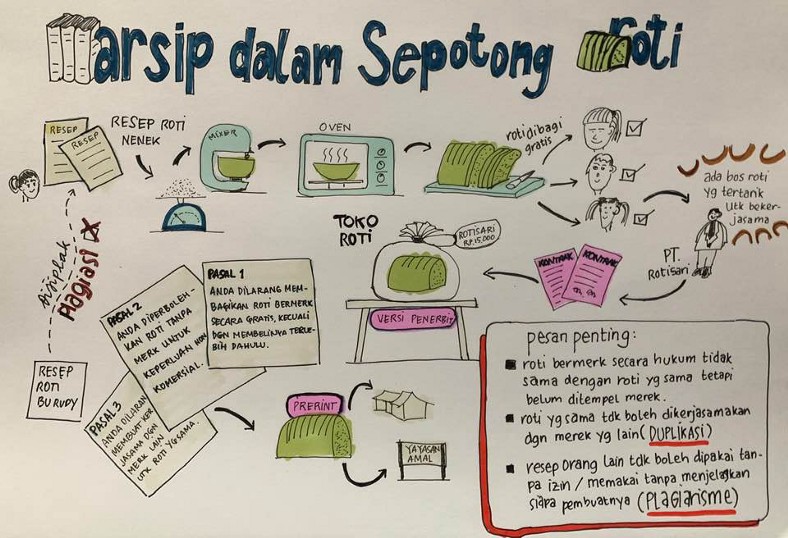 arsip dalam Sepotong roti
RESEP
RESEP
RESEP ROTI
NENEK
MIXER
OVEN
roti dibagi
gratis
ada bos roti
yg tertarik
utk beker-
jasama
PT.
Rotisari
KONTRAK
KONTRAK
TOKO
ROTI
ROTISARI
RP.15.000
VERSI PENERBIT
Dijiplak
Plagiasi
RESEP
ROTI
BU RUDY
PASAL 1
ANDA DILARANG MEM-
BAGIKAN ROTI BERMERK
SECARA GRATIS, KECUALI
DGN MEMBELINYA TERLE-
BIH DAHULU.
PASAL 2
ANDA DIPERBOLEH-
KAN ROTI TANPA
MERK UNTUK
KEPERLUAN NON
KOMERSIAL.
PASAL 3
ANDA DILARAN
MEMBUAT KER
JASAMA DGN
MERK LAIN
UTK ROTI YG SAMA.
PRERINT
YAYASAN
AMAL
pesan penting:
roti bermerk secara hukum tidak
sama dengan roti yg sama tetapi
belum ditempel merek.
roti yg sama tdk boleh dikerjasamakan
dgn merek yg lain (DUPLIKASI)
resep orang lain tdk boleh dipakai tan-
pa izin / memakai tanpa menjelaskan
siapa pembuatnya (PLAGIARISME)